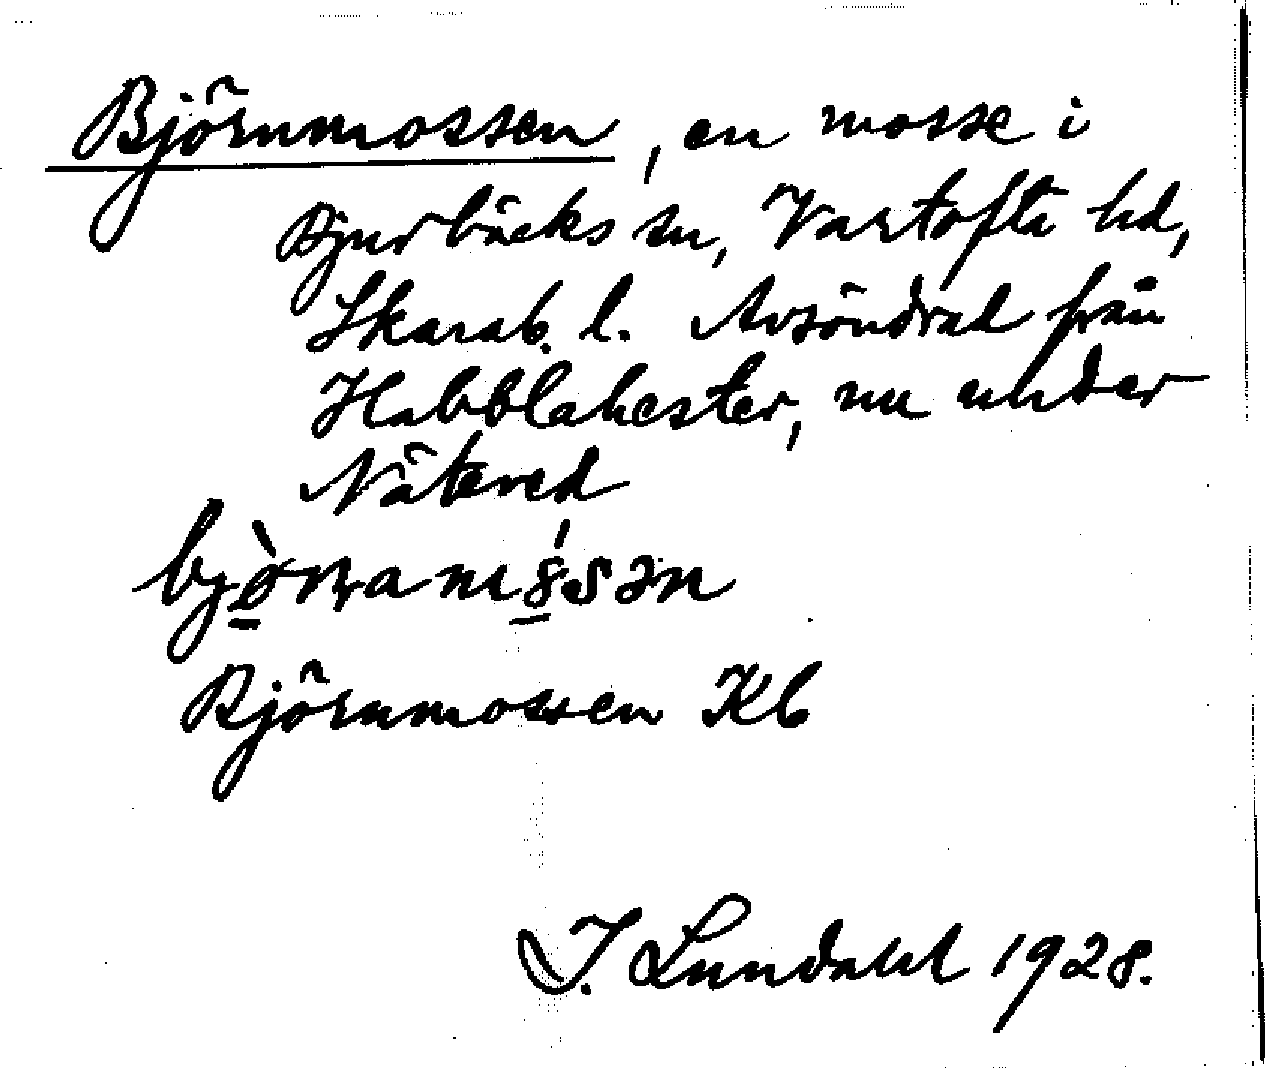 Björnmossen, en mosse i
Bjurbäcks sn, Vartofta hd,
Skarab. l. Avsöndrad från
Habblahester, nu under
Nätered
Björnmossen Kb
I. Lundahl 1928.